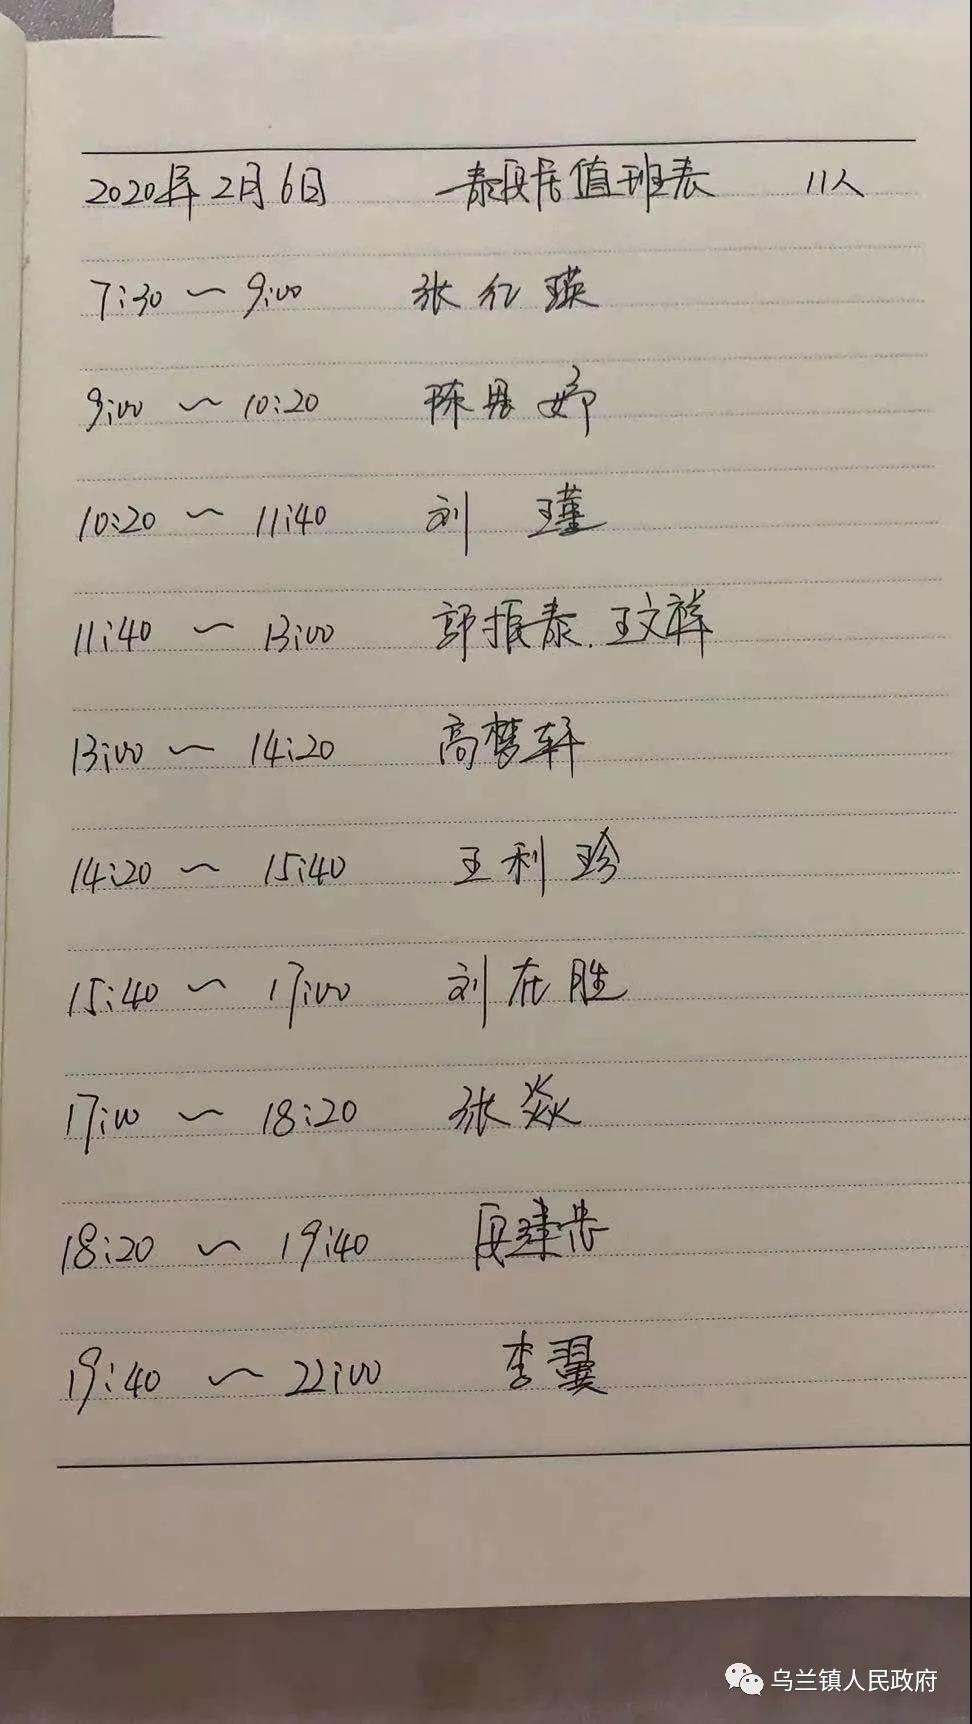 2020年2月6日 泰安居值班表 11人
7:30～9:00 张红瑛
9:00～10:20 陈思婷
10:20～11:40 刘瑾
11:40～13:00 郭振泰.王文祥
13:00～14:20 高梦轩
14:20～15:40 王利珍
15:40～17:00 刘在胜
17:00～18:20 张焱
18:20～19:40
19:40～22:00 李翼
乌兰镇人民政府